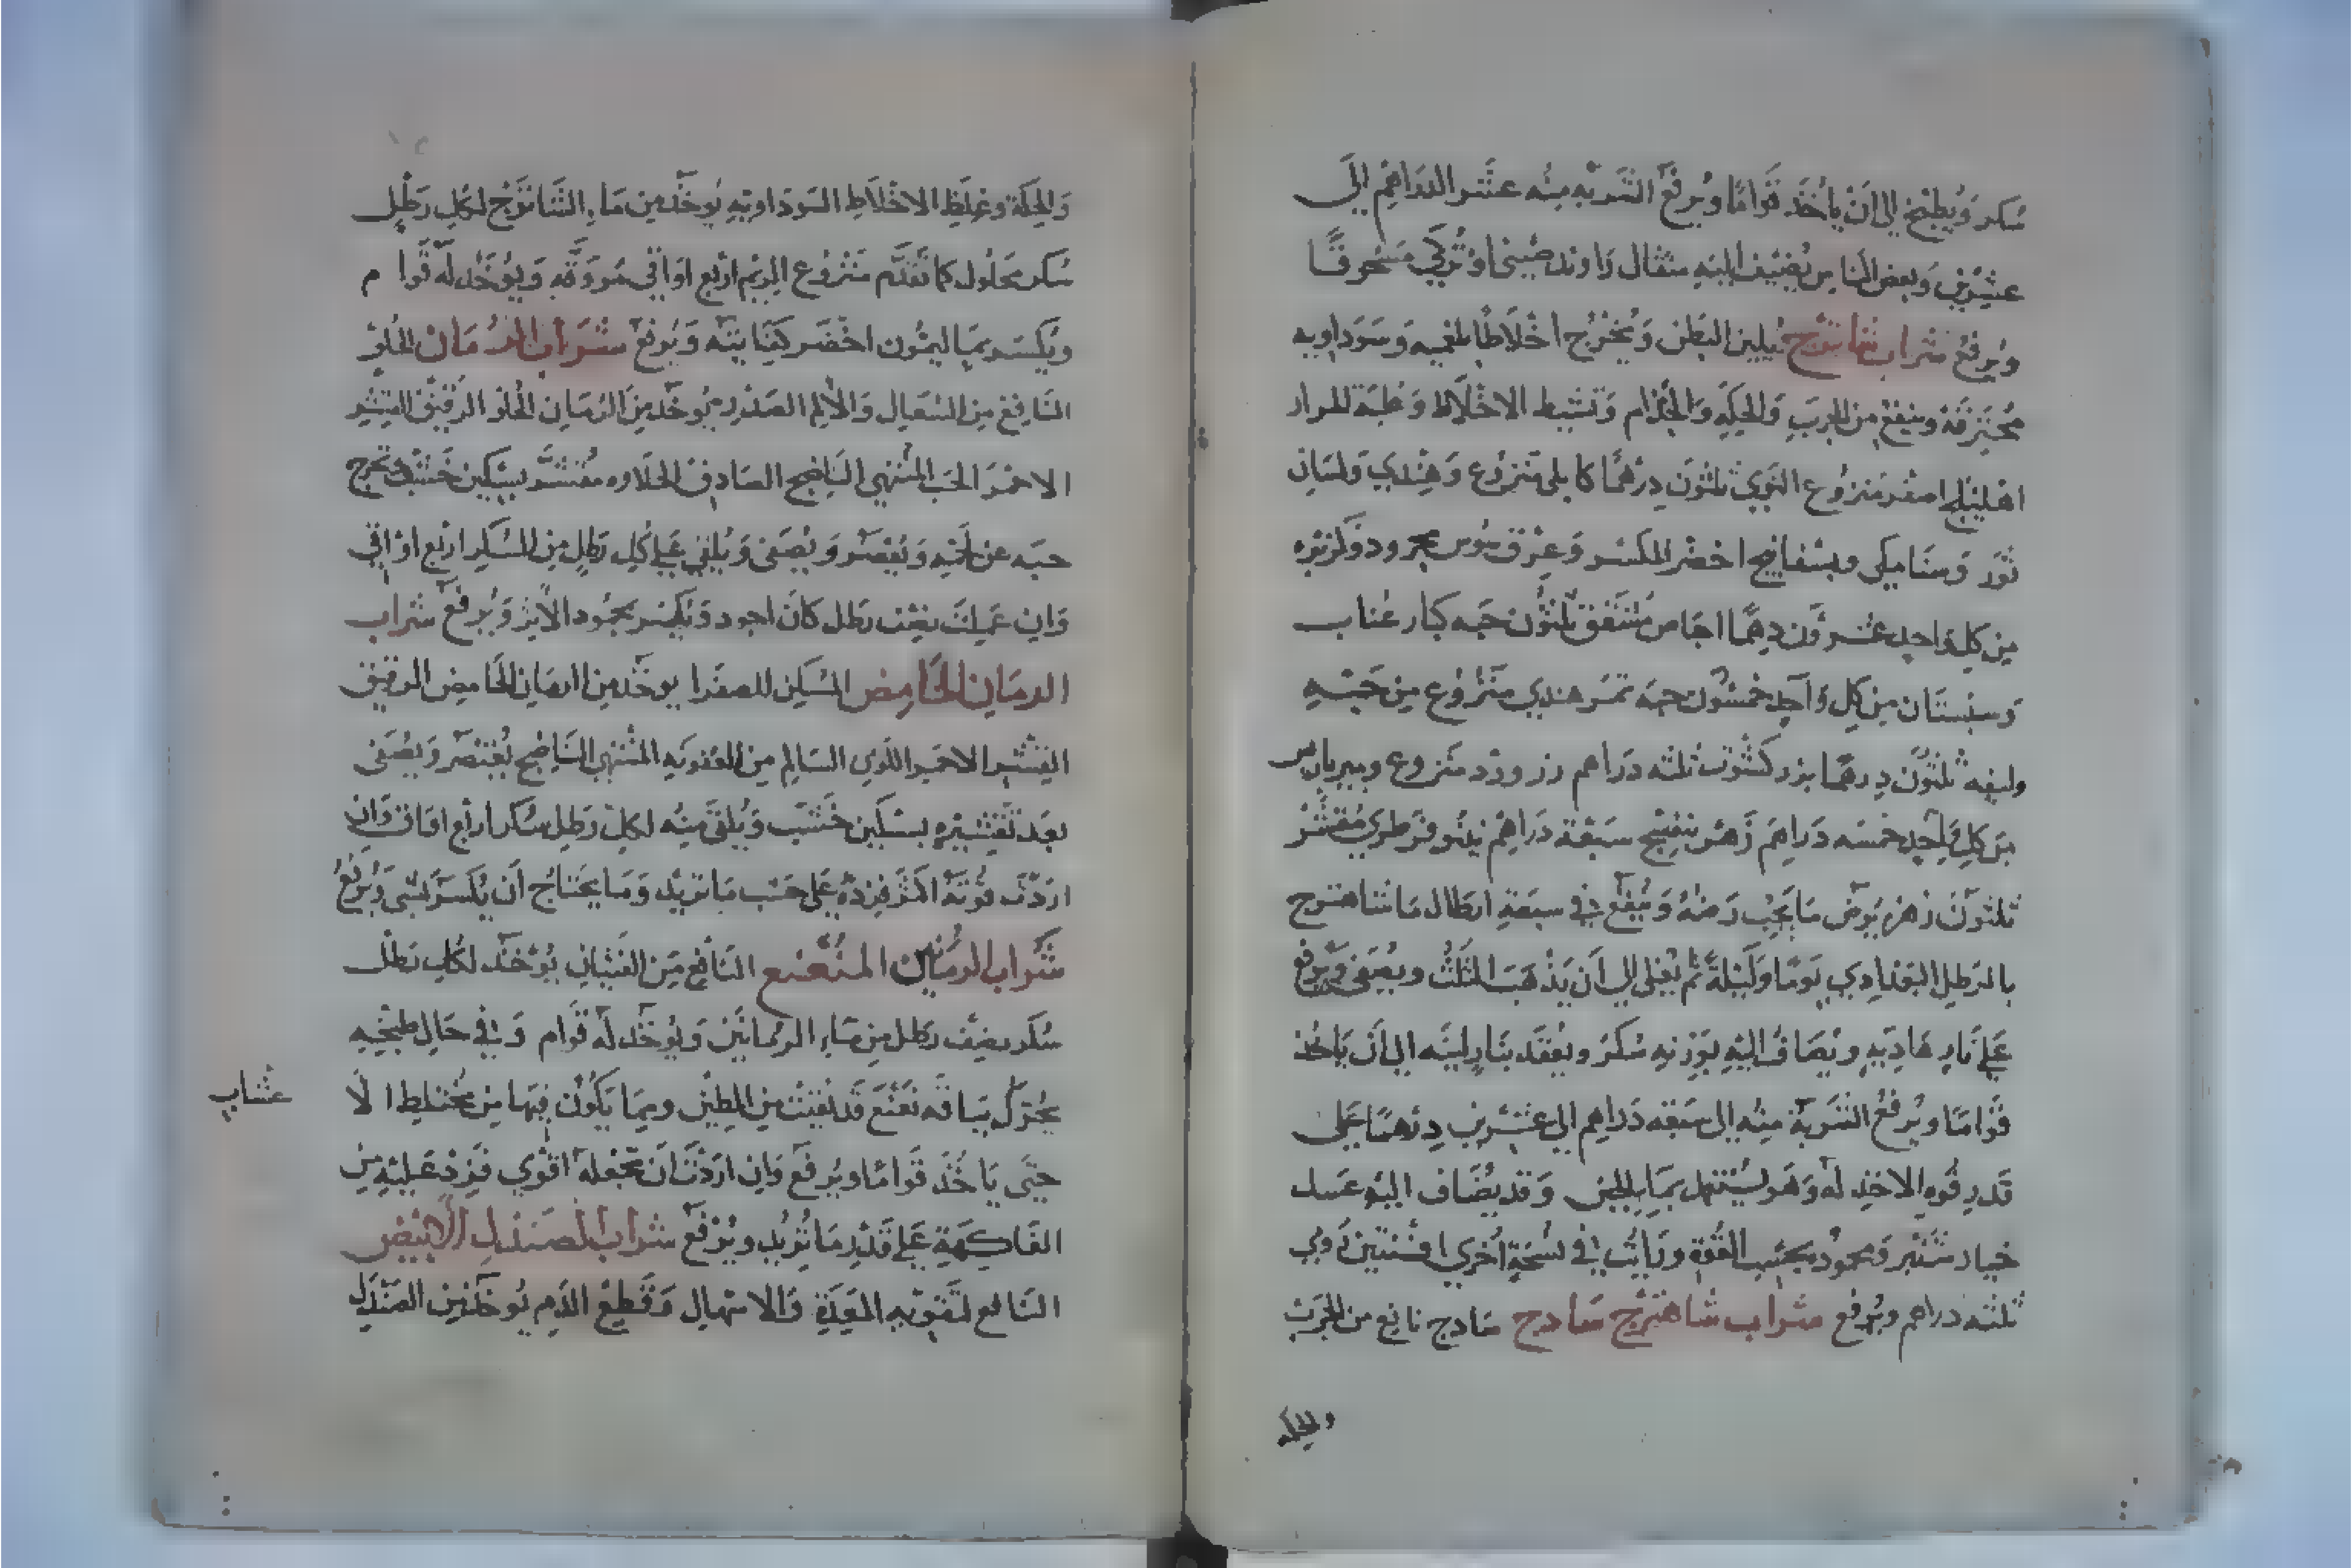 سكر ويطبخ الى ان ياخذ قواما ويرفع الشربه منه عشر الدراهم الى
عشرين وبعض الناس يضيف اليه مثقال راوند صيني او تركي مسحوقا
ويرفع شراب شاترج يلين البطن ويخرج اخلاطا بلغميه وسوداويه
محترقة وينفع من الجرب والحكه والجذام وتشيط الاخلاط وغلبة المرار
اهليلج اصفر منزوع النوي ثلثون درهما كابلي منزوع وهندي ولسان
ثور وسنا مكي وبسفايج اخضر المكسر وعرق سوس مجرود
من كل واحد عشرون درهما اجاص ثلثون حبه كبار عناب
وسبستان من كل واحد خمسون حبه تمر هندي منزوع من حبه
وليفه ثلثون درهما بزر كشوث ثلثه دراهم زر ورد منزوع وبرباريس
من كل واحد خمسه دراهم زهر بنفسج سبعة دراهم مقشر
ثلثون زهره يرض ما يجب رضه وينقع في سبعة ارطال ما شاهترج
بالرطل البغدادي يوما وليلة ثم يغلى الي ان يذهب الثلث ويصفى ويرفع
على نار هاديه ويضاف اليه بوزنه سكر ويعقد بنار لينه الى ان ياخذ
قواما ويرفع الشربة منه الى سبعه دراهم الى عشرين درهما على
قدر قوه الاخذ له وهو يستهل بماء الجبن وقد يضاف اليه عسل
خيار شنبر ومحموده بحسب القوة ورايت في نسخة اخري افسنتين رومي
ثلثه دراهم ويرفع شراب شاهترج سادج سادج نافع من الجرب
والحكه
والحكة وغلظ الاخلاط السوداويه يوخذ من ماء الشاترج لكل رطل
سكر محلول كما تقدم منزوع الريم اربع اواقي مروقه ويوخذ له قوام
ويكسر بماء ليمون اخضر كفايته ويرفع شراب الرمان الحلو
النافع من السعال والالم الصدر يوخذ من الرمان الحلو الرقيق القشر
الاحمر الحب المنتهي الناضج الصادق الحلاوه مقشر بسكين خشب تخرج
حبه عن لحمه ويعصر ويصفى ويلقي على كل رطل من السكر اربع اواقي
وان عملت نصف رطل كان اجود وتكسر بحمود الاترج ويرفع شراب
الرمان الحامض المسكن للصفرا يوخذ من الرمان الحامض الرقيق
القشر الاحمر اللون السالم من العفونه المنتهي الناضج يعتصر ويصفى
بعد تقشيره بسكين خشب ويلقى منه لكل رطل سكر اربع اواق وان
اردت قوته اكثر فزده على حسب ما تريد وما يحتاج ان يكسر بشي ويرفع
شراب الرمانين المنعنع النافع من الغثيان يوخذ لكل رطل
سكر نصف رطل من ماء الرمانين ويوخذ له قوام وفي حال طبخه
يحرك بباقه نعنع قد نقيت من الطين ومما يكون فيها من مختلط الا
عشاب
حتى ياخذ قواما ويرفع وان اردت ان تجعله اقوي فزد عليه من
الفاكهة على قدر ما تريد ويرفع شراب الصندل الابيض
النافع لتقويه المعدة والاسهال وقطع الدم يوخذ من الصندل